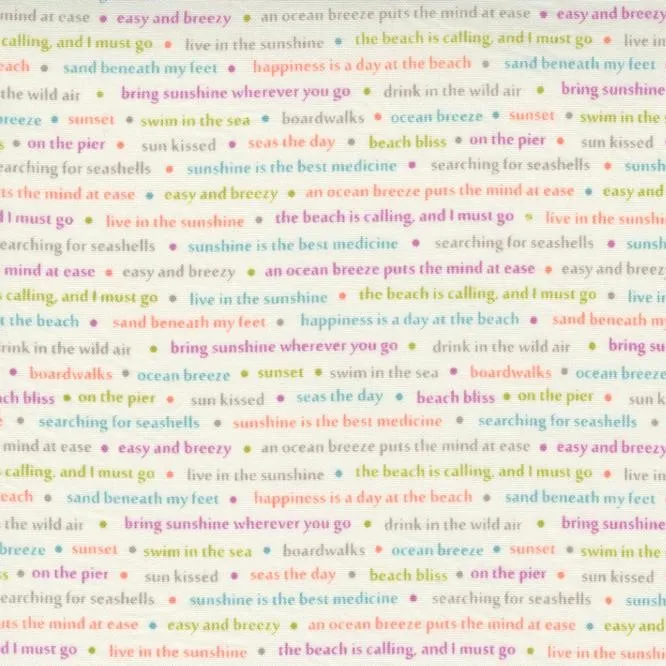 mind at ease • easy and breezy • an ocean breeze puts the mind at ease • easy and breezy
calling, and I must go • live in the sunshine • the beach is calling, and I must go • live in
each • sand beneath my feet • happiness is a day at the beach • sand beneath my feet
the wild air • bring sunshine wherever you go • drink in the wild air • bring sunshine
breeze • sunset • swim in the sea • boardwalks • ocean breeze • sunset • swim in the
s • on the pier • sun kissed • seas the day • beach bliss • on the pier • sun kissed
earching for seashells • sunshine is the best medicine • searching for seashells • sunsh
ts the mind at ease • easy and breezy • an ocean breeze puts the mind at ease • easy and
d I must go • live in the sunshine • the beach is calling, and I must go • live in the sunshi
earching for seashells • sunshine is the best medicine • searching for seashells • sunsh
mind at ease • easy and breezy • an ocean breeze puts the mind at ease • easy and breez
s calling, and I must go • live in the sunshine • the beach is calling, and I must go • live in
t the beach • sand beneath my feet • happiness is a day at the beach • sand beneath m
rink in the wild air • bring sunshine wherever you go • drink in the wild air • bring su
• boardwalks • ocean breeze • sunset • swim in the sea • boardwalks • ocean breeze
ach bliss • on the pier • sun kissed • seas the day • beach bliss • on the pier • sun k
• searching for seashells • sunshine is the best medicine • searching for seashells •
mind at ease • easy and breezy • an ocean breeze puts the mind at ease • easy and breezy
calling, and I must go • live in the sunshine • the beach is calling, and I must go • live in
each • sand beneath my feet • happiness is a day at the beach • sand beneath my feet
the wild air • bring sunshine wherever you go • drink in the wild air • bring sunshine
breeze • sunset • swim in the sea • boardwalks • ocean breeze • sunset • swim in the
ss • on the pier • sun kissed • seas the day • beach bliss • on the pier • sun kissed
earching for seashells • sunshine is the best medicine • searching for seashells • sunsh
uts the mind at ease • easy and breezy • an ocean breeze puts the mind at ease • easy and
d I must go • live in the sunshine • the beach is calling, and I must go • live in the sunshi